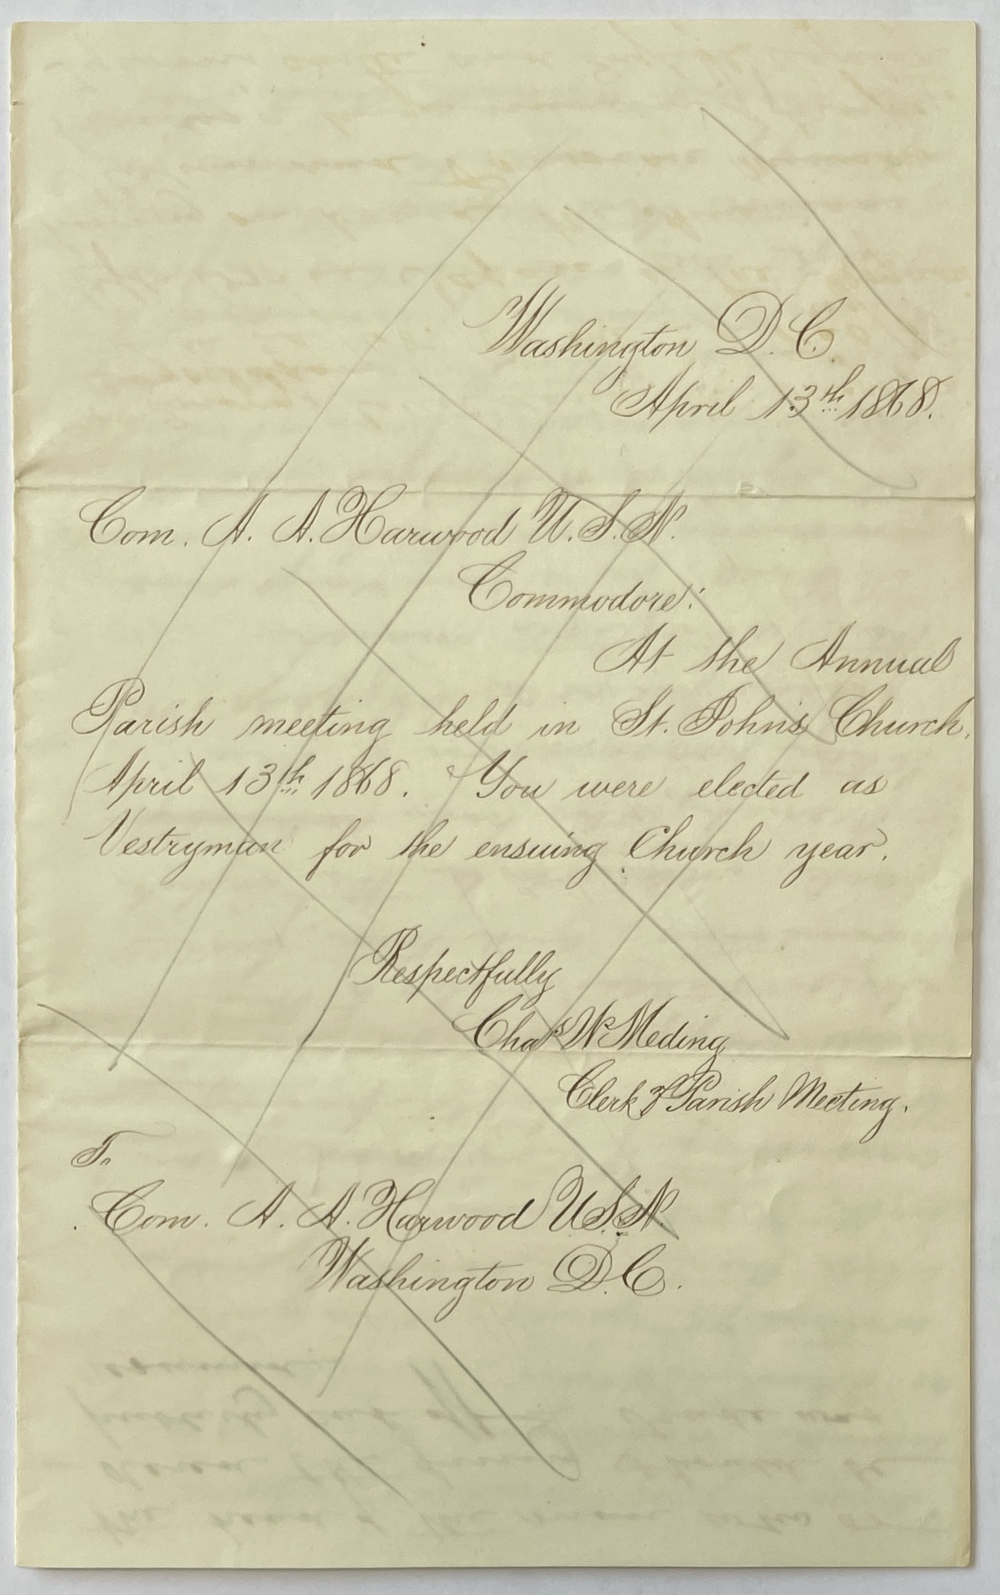 Washington D.C.
April 13th 1868.
Com. A. A. Harwood U.S.N.
Commodore:
At the Annual
Parish meeting held in St. John's Church,
April 13th 1868. You were elected as
Vestryman for the ensuing Church year.
Respectfully
Chas W Meding
Clerk of Parish Meeting.
To
Com. A. A. Harwood U.S.N.
Washington D.C.